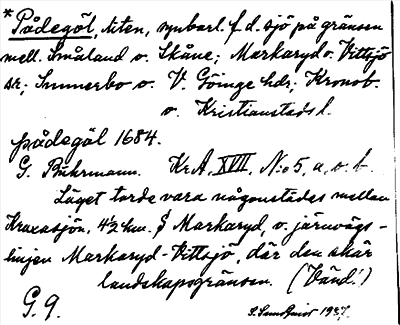 * Pådegöl, liten, synbarl. f. d. sjö på gränsen
mell. Småland o. Skåne; Markaryd o. Vittsjö
sr; Sunnerbo o. V. Göinge hdr; Kronob.
o. Kristianstads l.
pådegöl 1684.
G. Buhrmann. Kr A, XVII, N:o 5, a, o. b.
Läget torde vara någonstädes mellan
Kraxasjön, 4½ km. S Markaryd, o. järnvägs-
linjen Markaryd-Vittsjö, där den skär
landskapsgränsen. (Vänd!)
G. 9.
S. Sundqvist 1927.